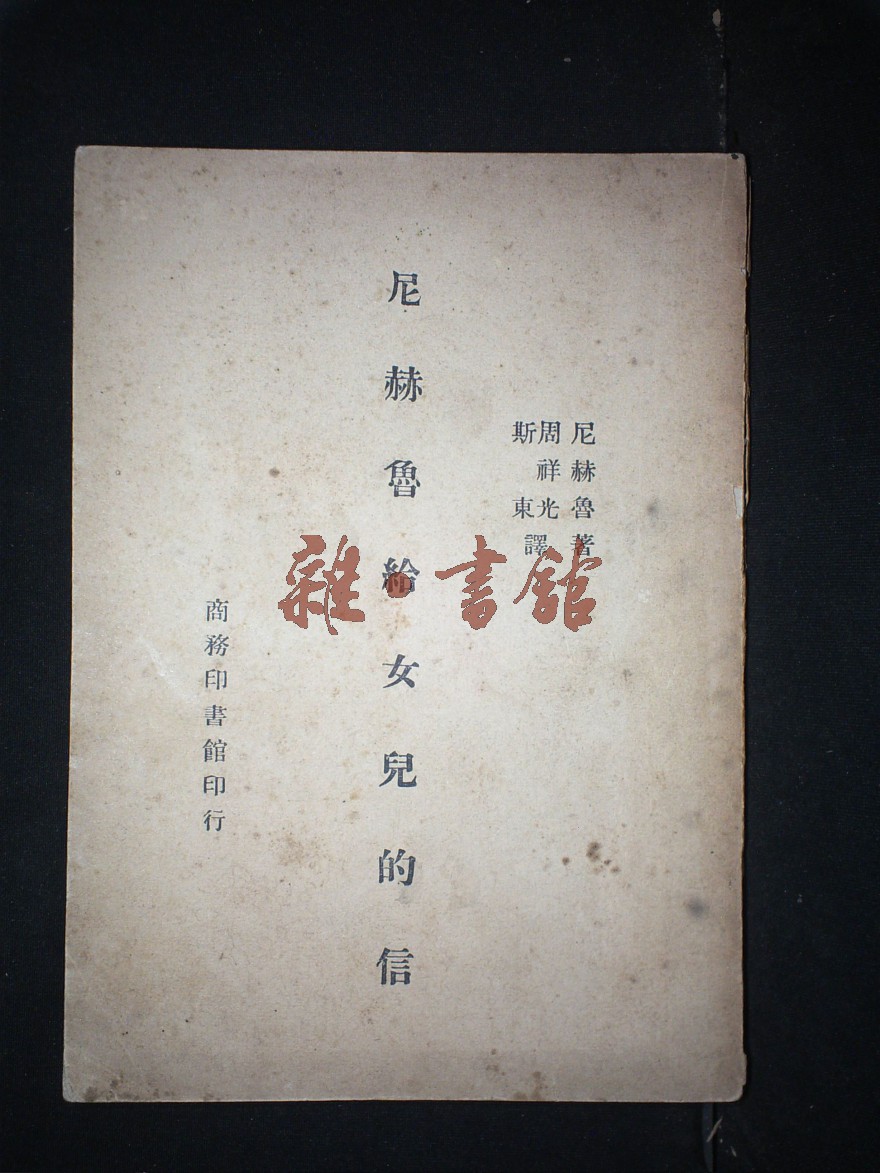 尼赫魯著
周祥光
斯東
譯
尼赫魯給女兒的信
商務印書館印行
雜·書館